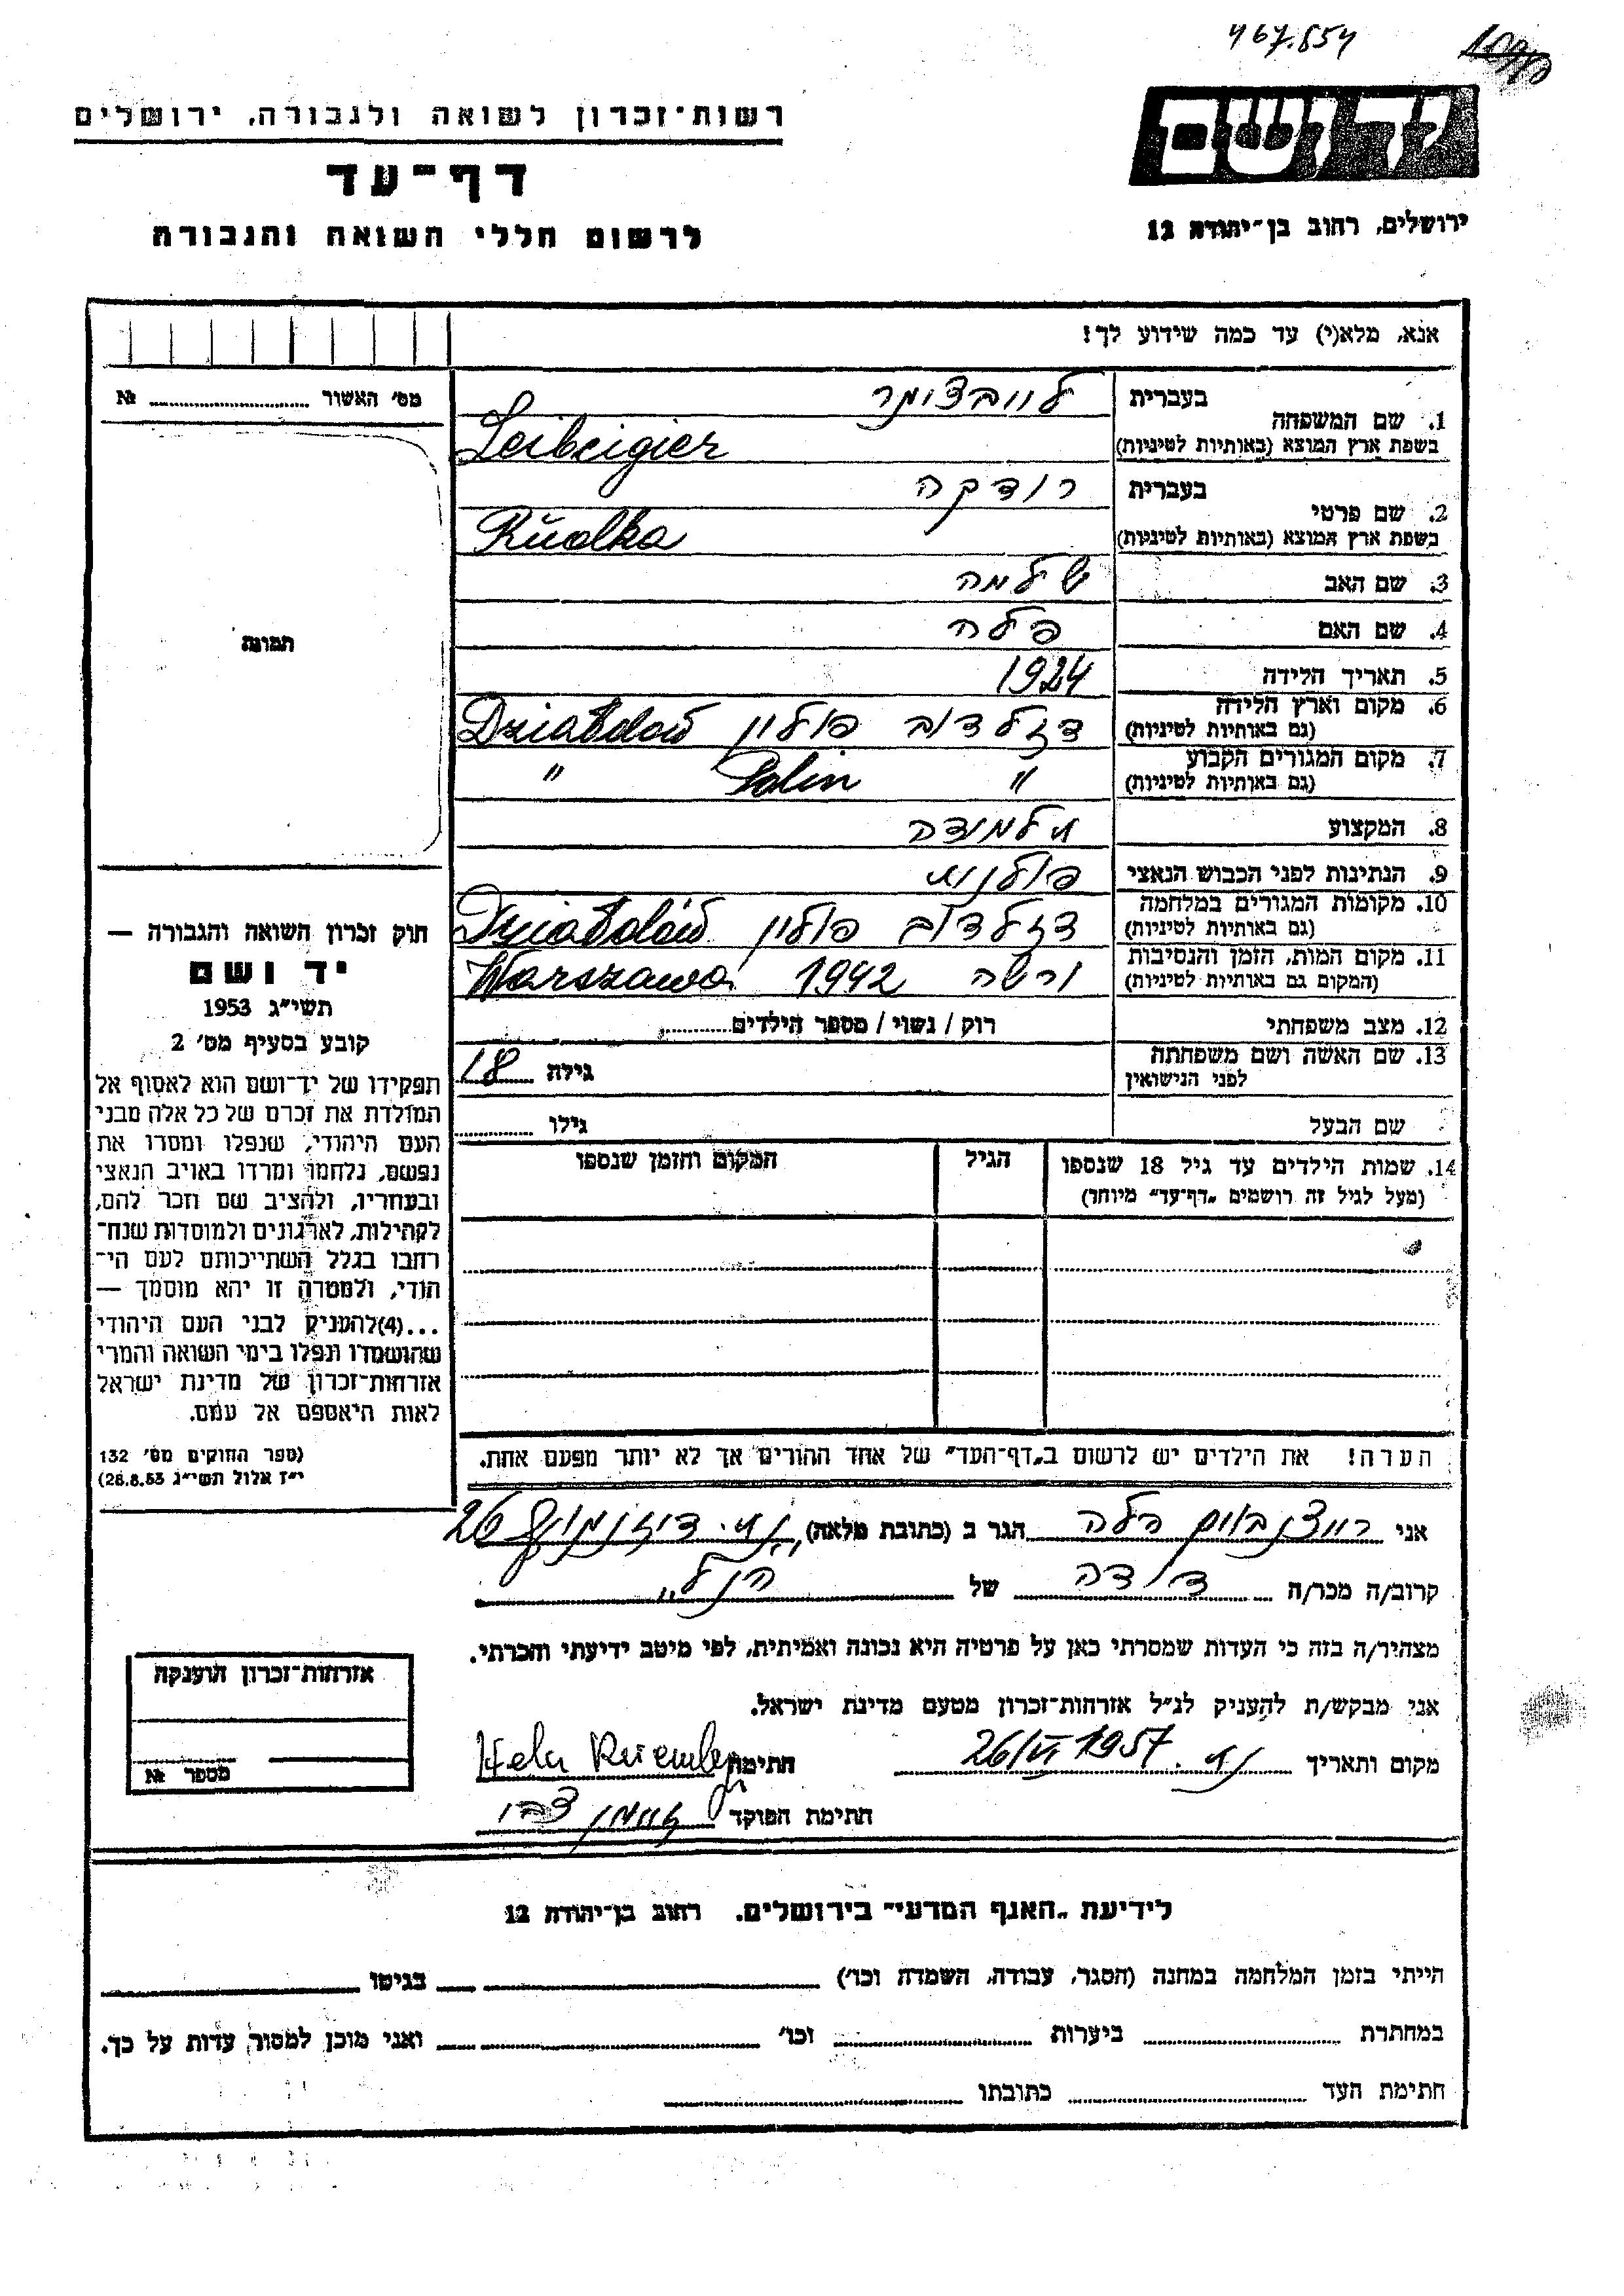 467.554
רשות־זכרון לשואה ולגבורה, ירושלים
יד ושם
דף־עד
לרשום חללי השואה והגבורה
ירושלים, רחוב בן־יהודה 12
אנא, מלא(י) עד כמה שידוע לך!
מס׳ האשור ........ №
תמונה
1. שם המשפחה בעברית
בשפת ארץ המוצא (באותיות לטיניות) Leibeigier
2. שם פרטי בעברית רודקה
בשפת ארץ המוצא (באותיות לטיניות) Rudka
3. שם האב שלמה
4. שם האם פלה
5. תאריך הלידה 1924
6. מקום וארץ הלידה (גם באותיות לטיניות) דזלדוב פולין Działdow
7. מקום המגורים הקבוע (גם באותיות לטיניות) " Polin "
8. המקצוע תלמידה
9. הנתינות לפני הכבוש הנאצי פולנית
10. מקומות המגורים במלחמה (גם באותיות לטיניות) דזלדוב פולין Działdow
11. מקום המות, הזמן והנסיבות (המקום גם באותיות לטיניות) ורשה 1942 Warszawa
12. מצב משפחתי רוק / נשוי / מספר הילדים........
13. שם האשה ושם משפחתה לפני הנישואין גילה 18
שם הבעל גילו ........
14. שמות הילדים עד גיל 18 שנספו (מעל לגיל זה רושמים „דף־עד״ מיוחד) הגיל המקום והזמן שנספו
חוק זכרון השואה והגבורה —
יד ושם
תשי״ג 1953
קובע בסעיף מס׳ 2
תפקידו של יד־ושם הוא לאסוף אל
המולדת את זכרם של כל אלה מבני
העם היהודי, שנפלו ומסרו את
נפשם, נלחמו ומרדו באויב הנאצי
ובעוזריו, ולהציב שם וזכר להם,
לקהילות, לארגונים ולמוסדות שנח־
רבו בגלל השתייכותם לעם הי־
הודי, ולמטרה זו יהא מוסמך —
...(4)להעניק לבני העם היהודי
שהושמדו ונפלו בימי השואה והמרי
אזרחות־זכרון של מדינת ישראל
לאות היאספם אל עמם.
(ספר החוקים מס׳ 132
י״ז אלול תשי״ג 28.8.53)
הערה! את הילדים יש לרשום ב„דף־העד״ של אחד ההורים אך לא יותר מפעם אחת.
אני רוזנבוים הלה הגר ב (כתובת מלאה) ת״א. דיזנגוף 26
קרוב/ה מכר/ה דודה של הנ״ל
מצהיר/ה בזה כי העדות שמסרתי כאן על פרטיה היא נכונה ואמיתית, לפי מיטב ידיעתי והכרתי.
אני מבקש/ת להעניק לנ״ל אזרחות־זכרון מטעם מדינת ישראל.
מקום ותאריך ת״א. 26/VI 1957 חתימה Hela
חתימת הפוקד
אזרחות־זכרון הוענקה
מספר №
לידיעת „האגף המדעי״ בירושלים. רחוב בן־יהודה 12
הייתי בזמן המלחמה במחנה (הסגר, עבודה, השמדה וכו׳) בגיטו
במחתרת ביערות וכו׳ ואני מוכן למסור עדות על כך.
חתימת העד כתובתו